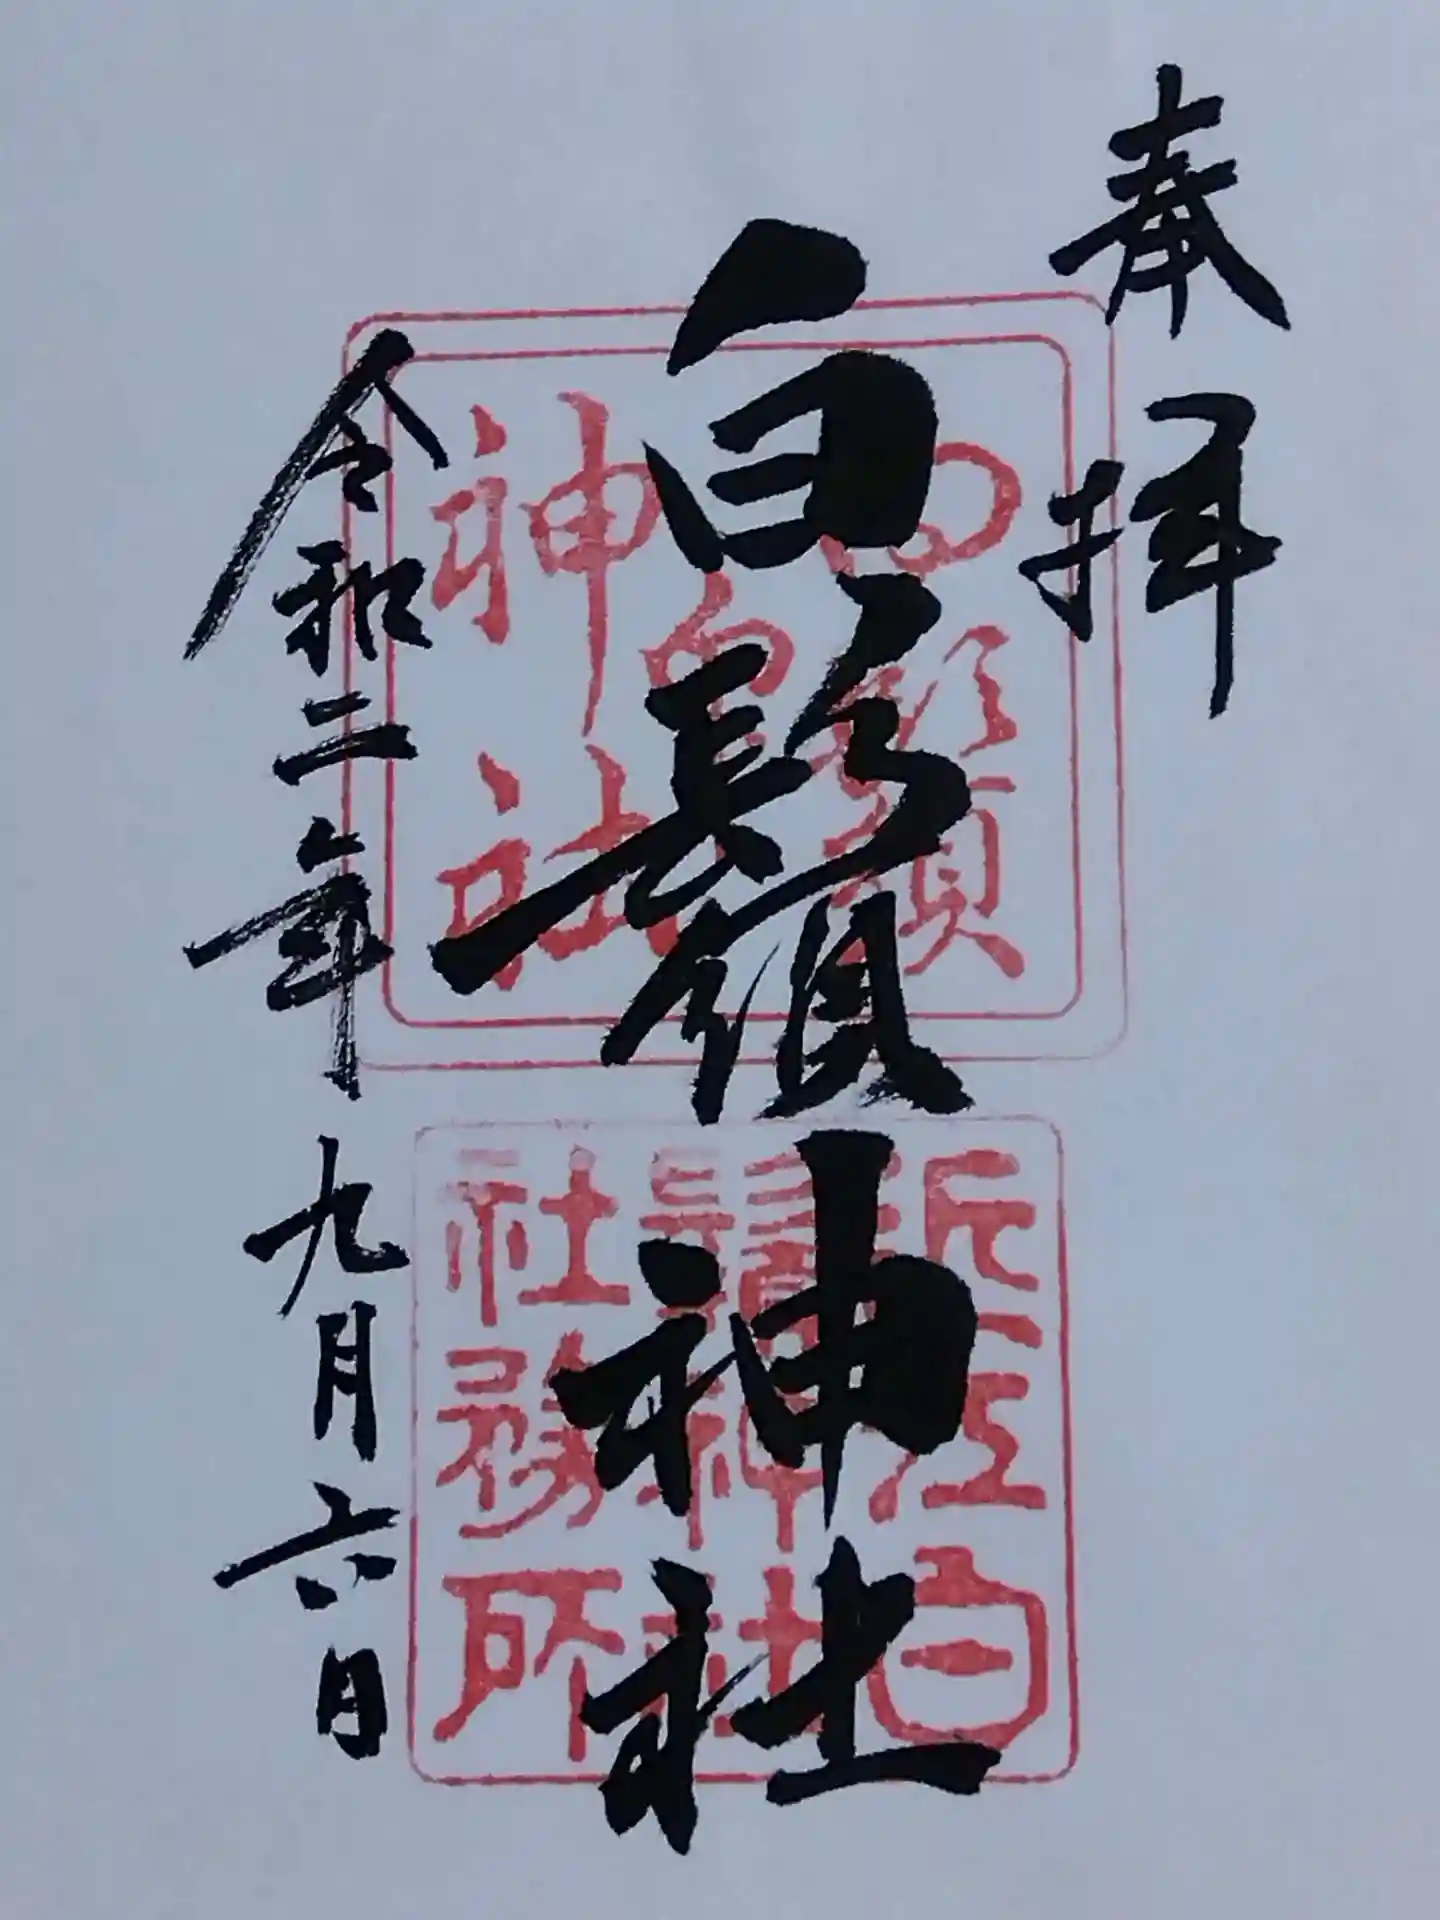 奉拝
白鬚神社
令和二年九月六日
近江白
鬚神社
社務所